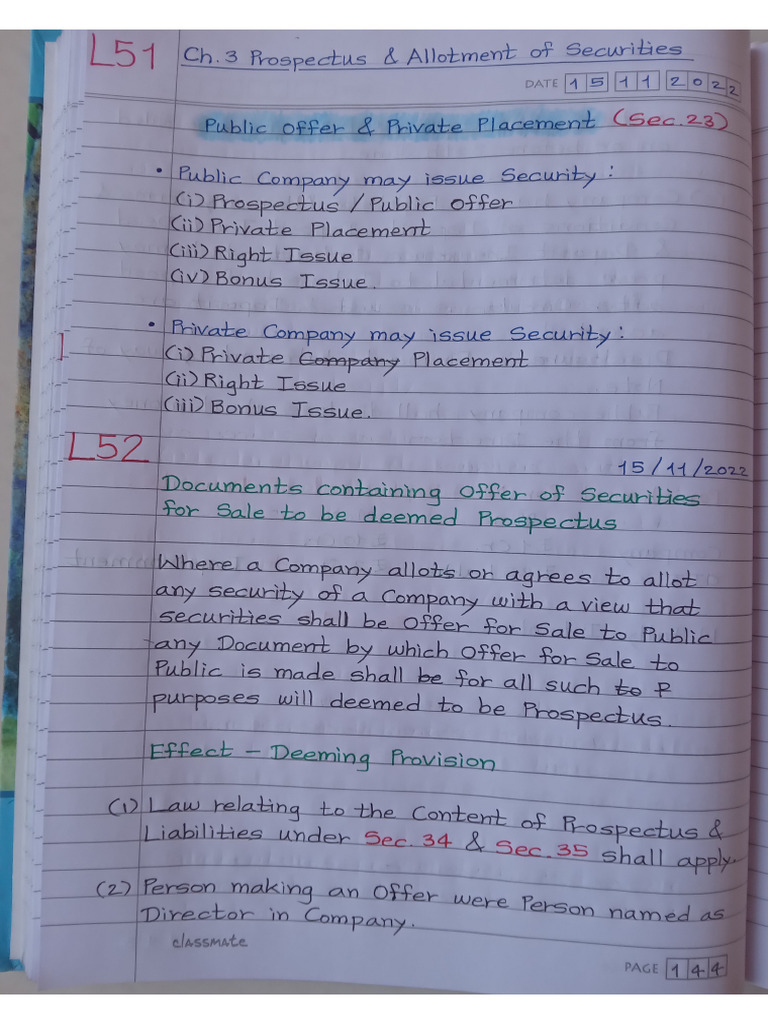 L51 Ch. 3 Prospectus & Allotment of Securities
DATE 15 11 2022
Public Offer & Private Placement (Sec. 23)
• Public Company may issue Security :
(i) Prospectus / Public Offer
(ii) Private Placement
(iii) Right Issue
(iv) Bonus Issue.
• Private Company may issue Security :
(i) Private Company Placement
(ii) Right Issue
(iii) Bonus Issue.
L52
15/11/2022
Documents containing Offer of Securities
for Sale to be deemed Prospectus
Where a Company allots or agrees to allot
any security of a Company with a view that
securities shall be Offer for Sale to Public
any Document by which Offer for Sale to
Public is made shall be for all such to P
purposes will deemed to be Prospectus.
Effect - Deeming Provision
(1) Law relating to the Content of Prospectus &
Liabilities under Sec. 34 & Sec. 35 shall apply.
(2) Person making an Offer were Person named as
Director in Company.
classmate
PAGE 144